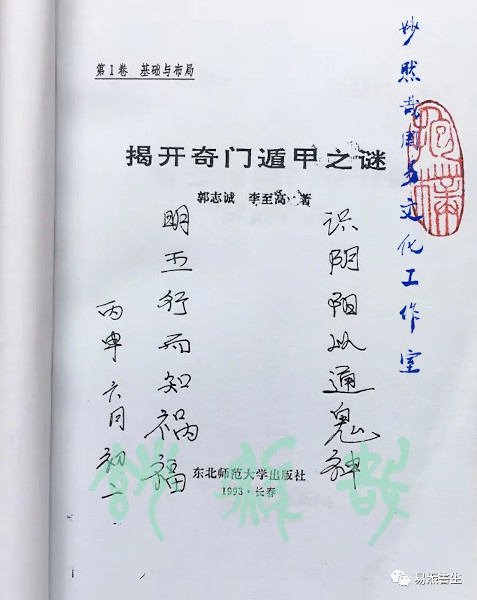 第1卷 基础与布局
揭开奇门遁甲之谜
郭志诚 李至高 著
识阴阳以通鬼神
明五行而知祸福
丙申六月初二
妙然哉周易文化工作室
东北师范大学出版社
1993·长春
易杰书生